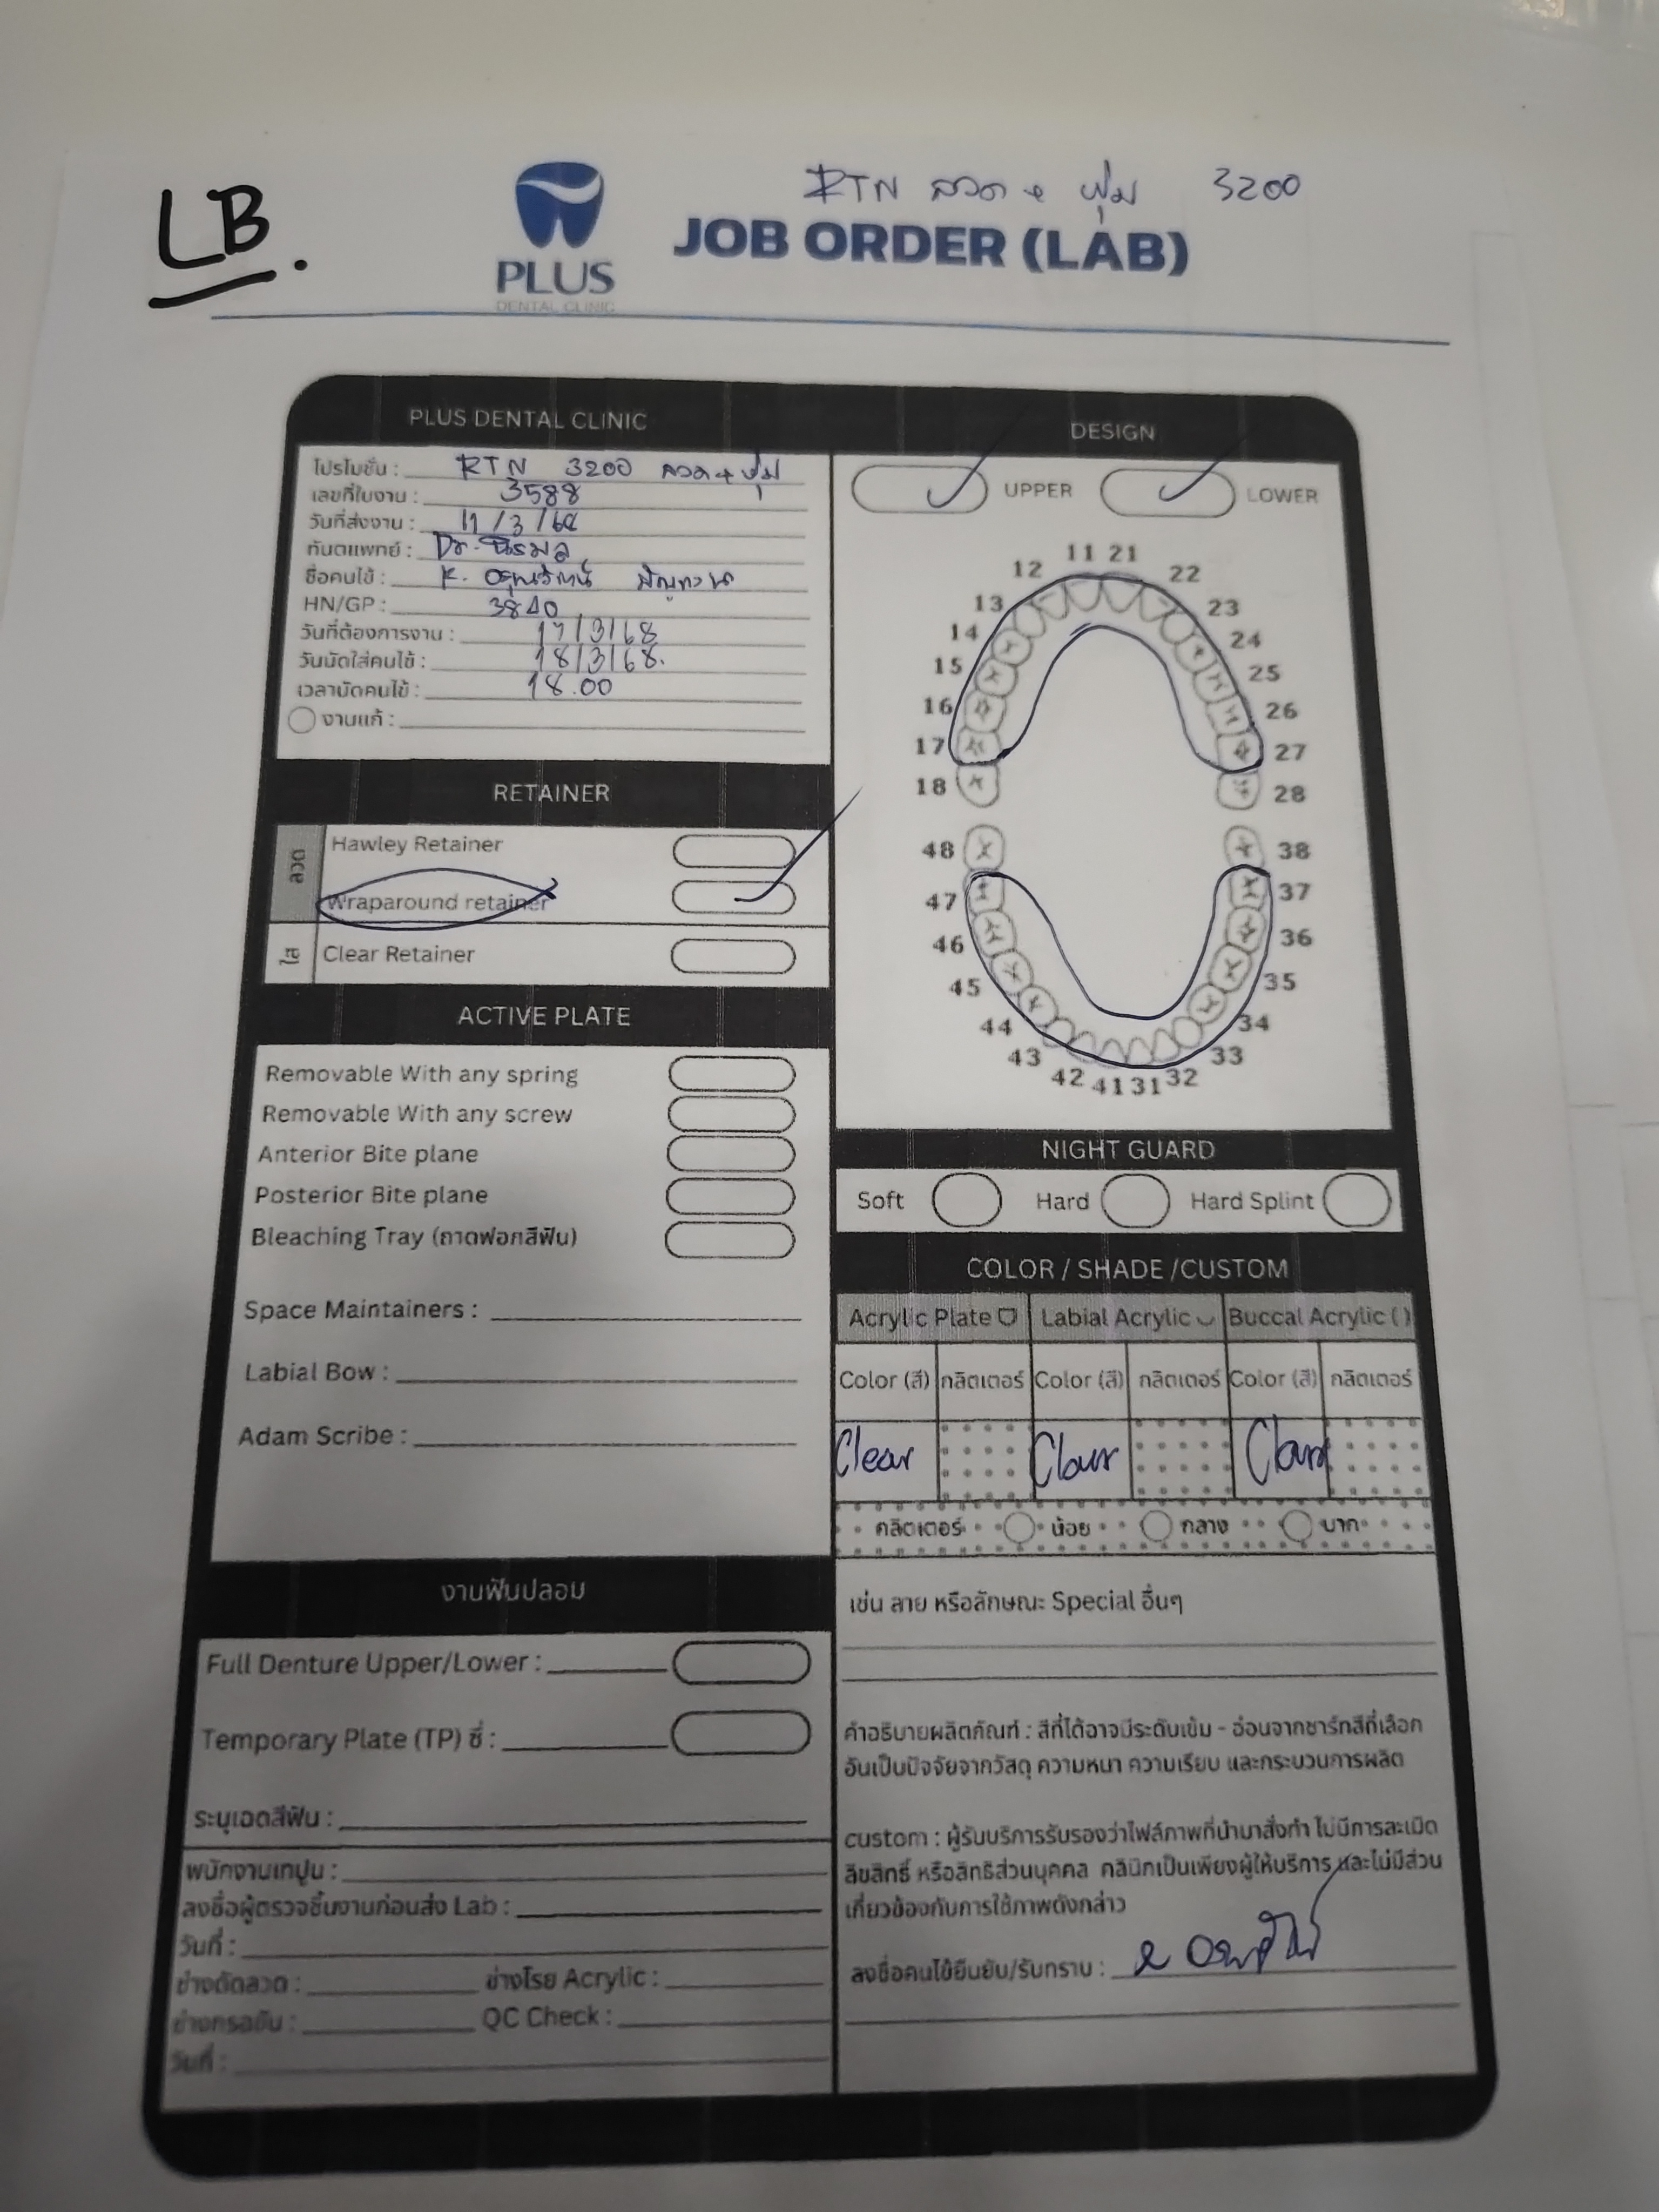 LB.
RTN ลวด + ฟุ่ม 3200
PLUS
DENTAL CLINIC
JOB ORDER (LAB)
PLUS DENTAL CLINIC
โปรโมชั่น : RTN 3200 ลวด + ฟุ่ม
เลขที่ใบงาน : 3588
วันที่ส่งงาน : 11/3/68
ทันตแพทย์ : Dr. นิรมล
ชื่อคนไข้ : K.
HN/GP : 3840
วันที่ต้องการงาน : 17/3/68
วันนัดใส่คนไข้ : 18/3/68.
เวลานัดคนไข้ : 18.00
งานแก้ :
RETAINER
ลวด
Hawley Retainer
Wraparound retainer
ใส
Clear Retainer
ACTIVE PLATE
Removable With any spring
Removable With any screw
Anterior Bite plane
Posterior Bite plane
Bleaching Tray (ถาดฟอกสีฟัน)
Space Maintainers :
Labial Bow :
Adam Scribe :
งานฟันปลอม
Full Denture Upper/Lower :
Temporary Plate (TP) ซี่ :
ระบุเฉดสีฟัน :
พนักงานเทปูน :
ลงชื่อผู้ตรวจชิ้นงานก่อนส่ง Lab :
วันที่ :
ช่างดัดลวด : ช่างโรย Acrylic :
ช่างกรอขัด : QC Check :
วันที่ :
DESIGN
UPPER LOWER
11 21
12 22
13 23
14 24
15 25
16 26
17 27
18 28
48 38
47 37
46 36
45 35
44 34
43 33
42 41 31 32
NIGHT GUARD
Soft Hard Hard Splint
COLOR / SHADE /CUSTOM
Acrylic Plate Labial Acrylic Buccal Acrylic ( )
Color (สี) กลิตเตอร์ Color (สี) กลิตเตอร์ Color (สี) กลิตเตอร์
Clear Clear Clear
กลิตเตอร์ น้อย กลาง มาก
เช่น ลาย หรือลักษณะ Special อื่นๆ
คำอธิบายผลิตภัณฑ์ : สีที่ได้อาจมีระดับเข้ม - อ่อนจากชาร์ทสีที่เลือก
อันเป็นปัจจัยจากวัสดุ ความหนา ความเรียบ และกระบวนการผลิต
custom : ผู้รับบริการรับรองว่าไฟล์ภาพที่นำมาสั่งทำ ไม่มีการละเมิด
ลิขสิทธิ์ หรือสิทธิส่วนบุคคล คลินิกเป็นเพียงผู้ให้บริการ และไม่มีส่วน
เกี่ยวข้องกับการใช้ภาพดังกล่าว
ลงชื่อคนไข้ยืนยัน/รับทราบ :